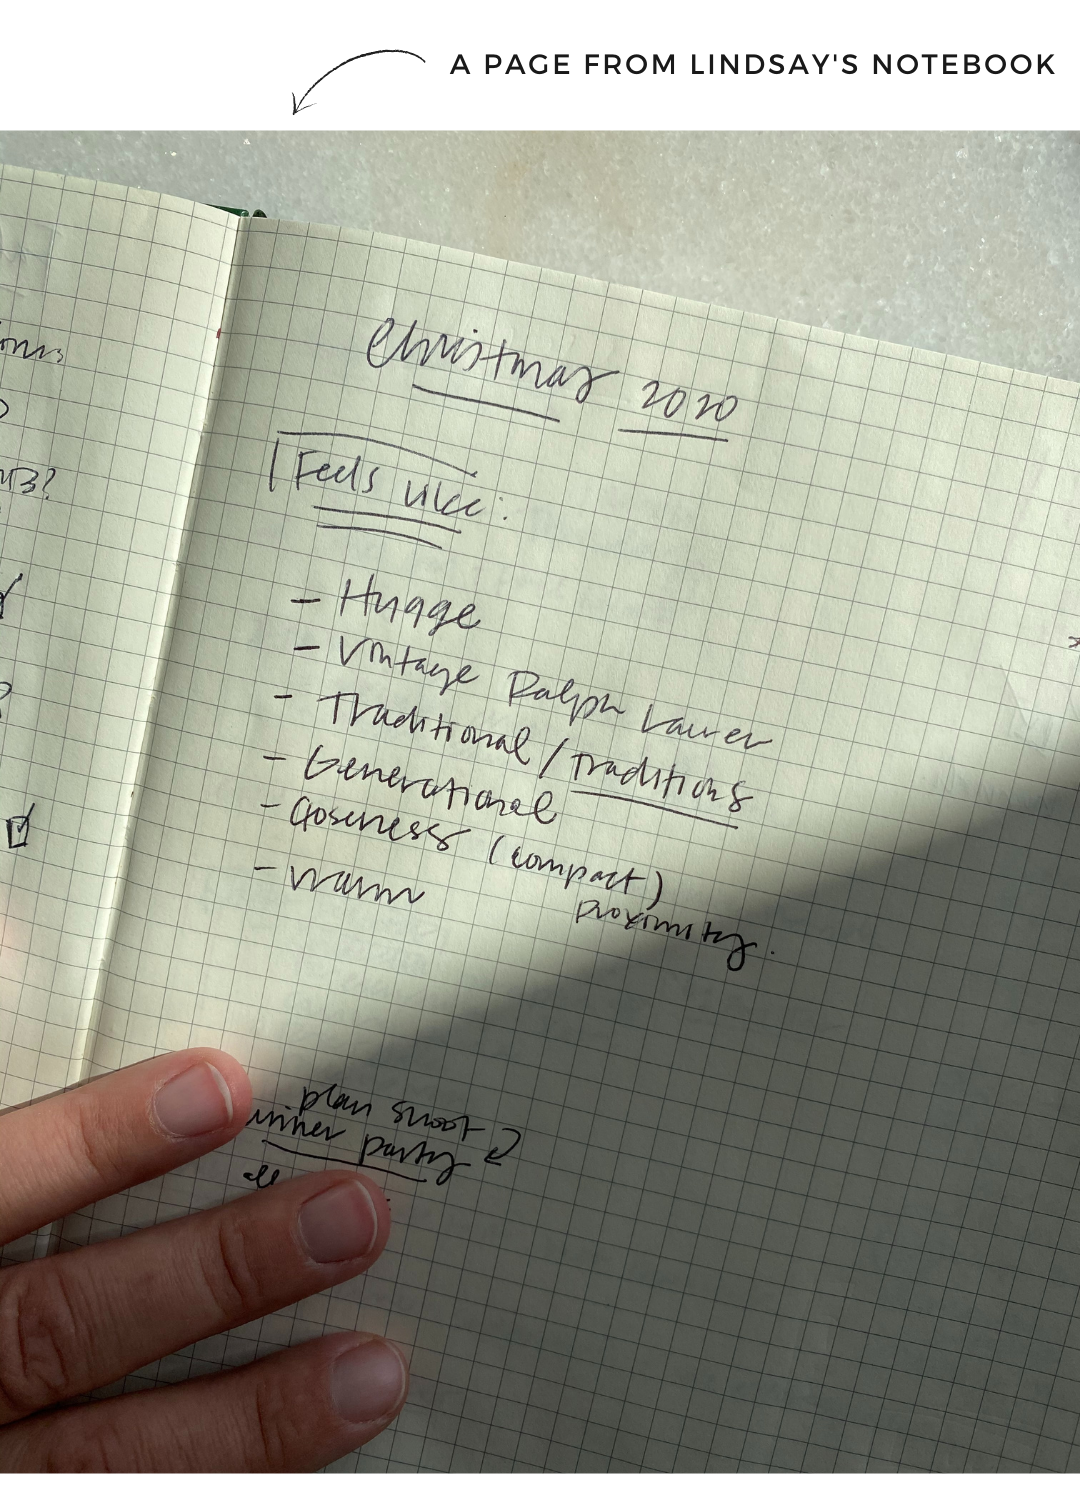 A PAGE FROM LINDSAY'S NOTEBOOK
Christmas 2020
Feels like:
- Hygge
- Vintage Ralph Lauren
- Traditional / Traditions
- Generational
- Closeness (compact)
proximity.
- Warm
plan shoot
party